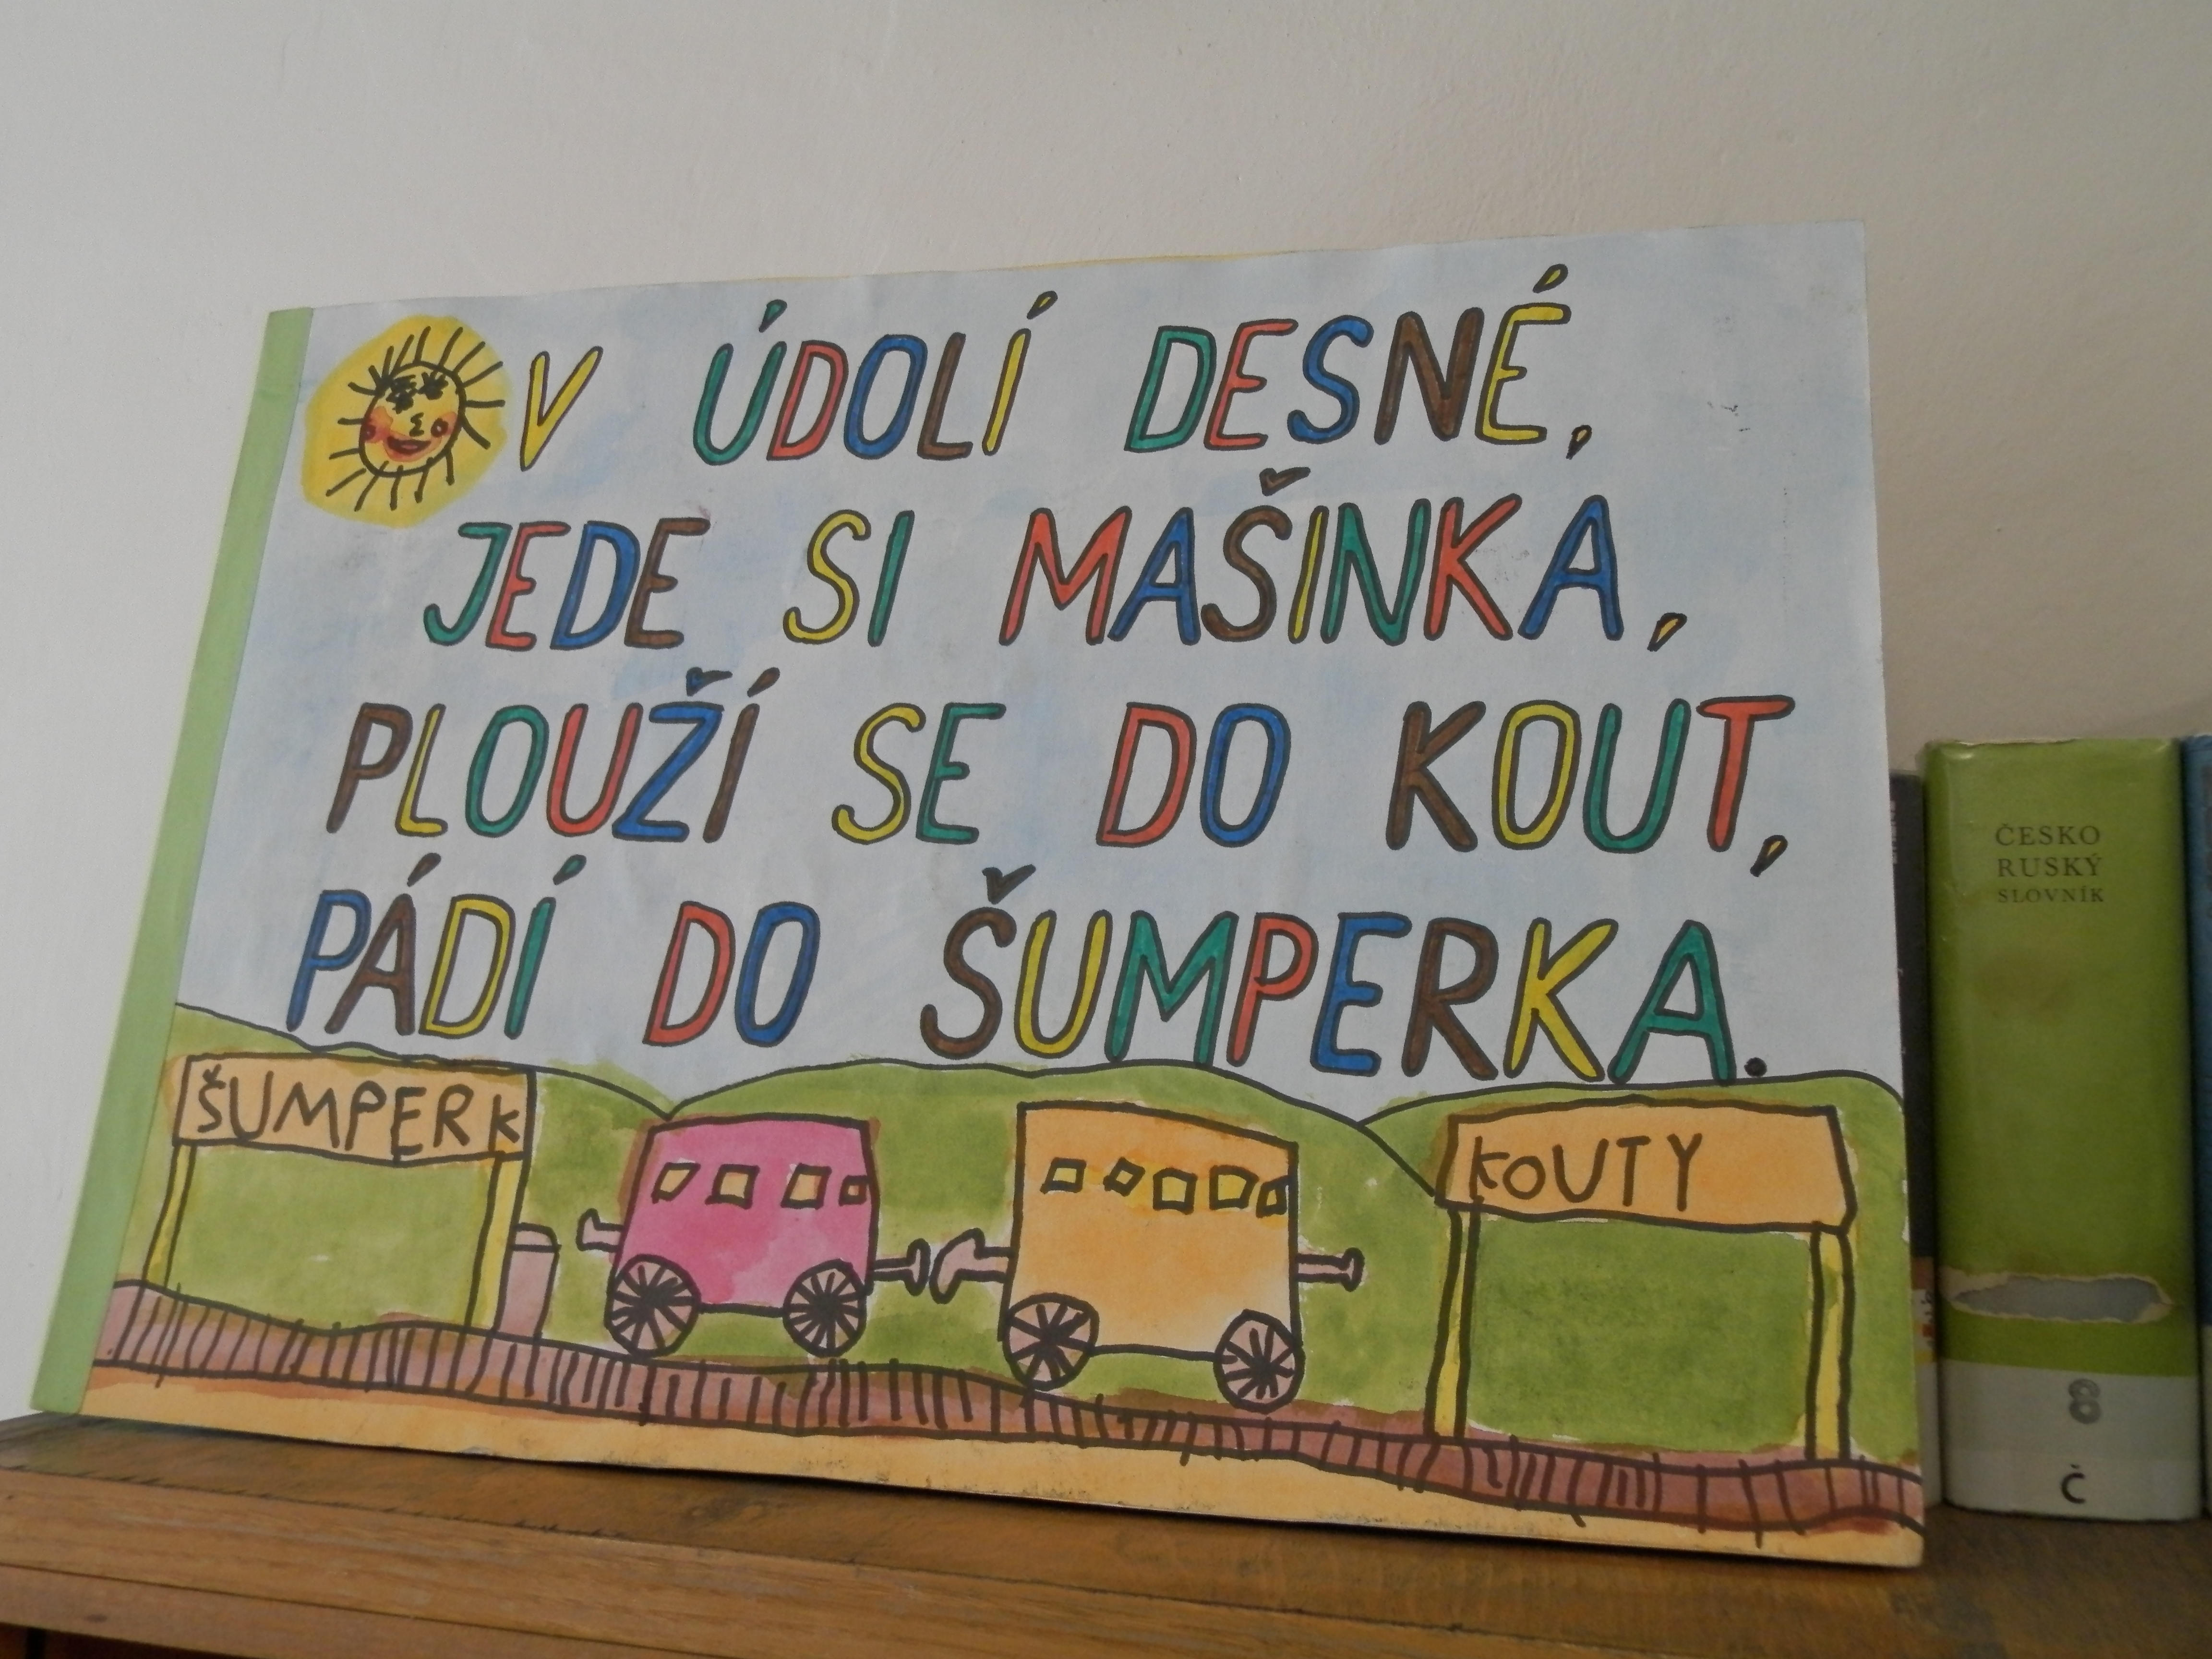 V ÚDOLÍ DESNÉ,
JEDE SI MAŠINKA,
PLOUŽÍ SE DO KOUT,
PÁDÍ DO ŠUMPERKA.
ŠUMPERK
KOUTY
ČESKO
RUSKÝ
SLOVNÍK
8
Č